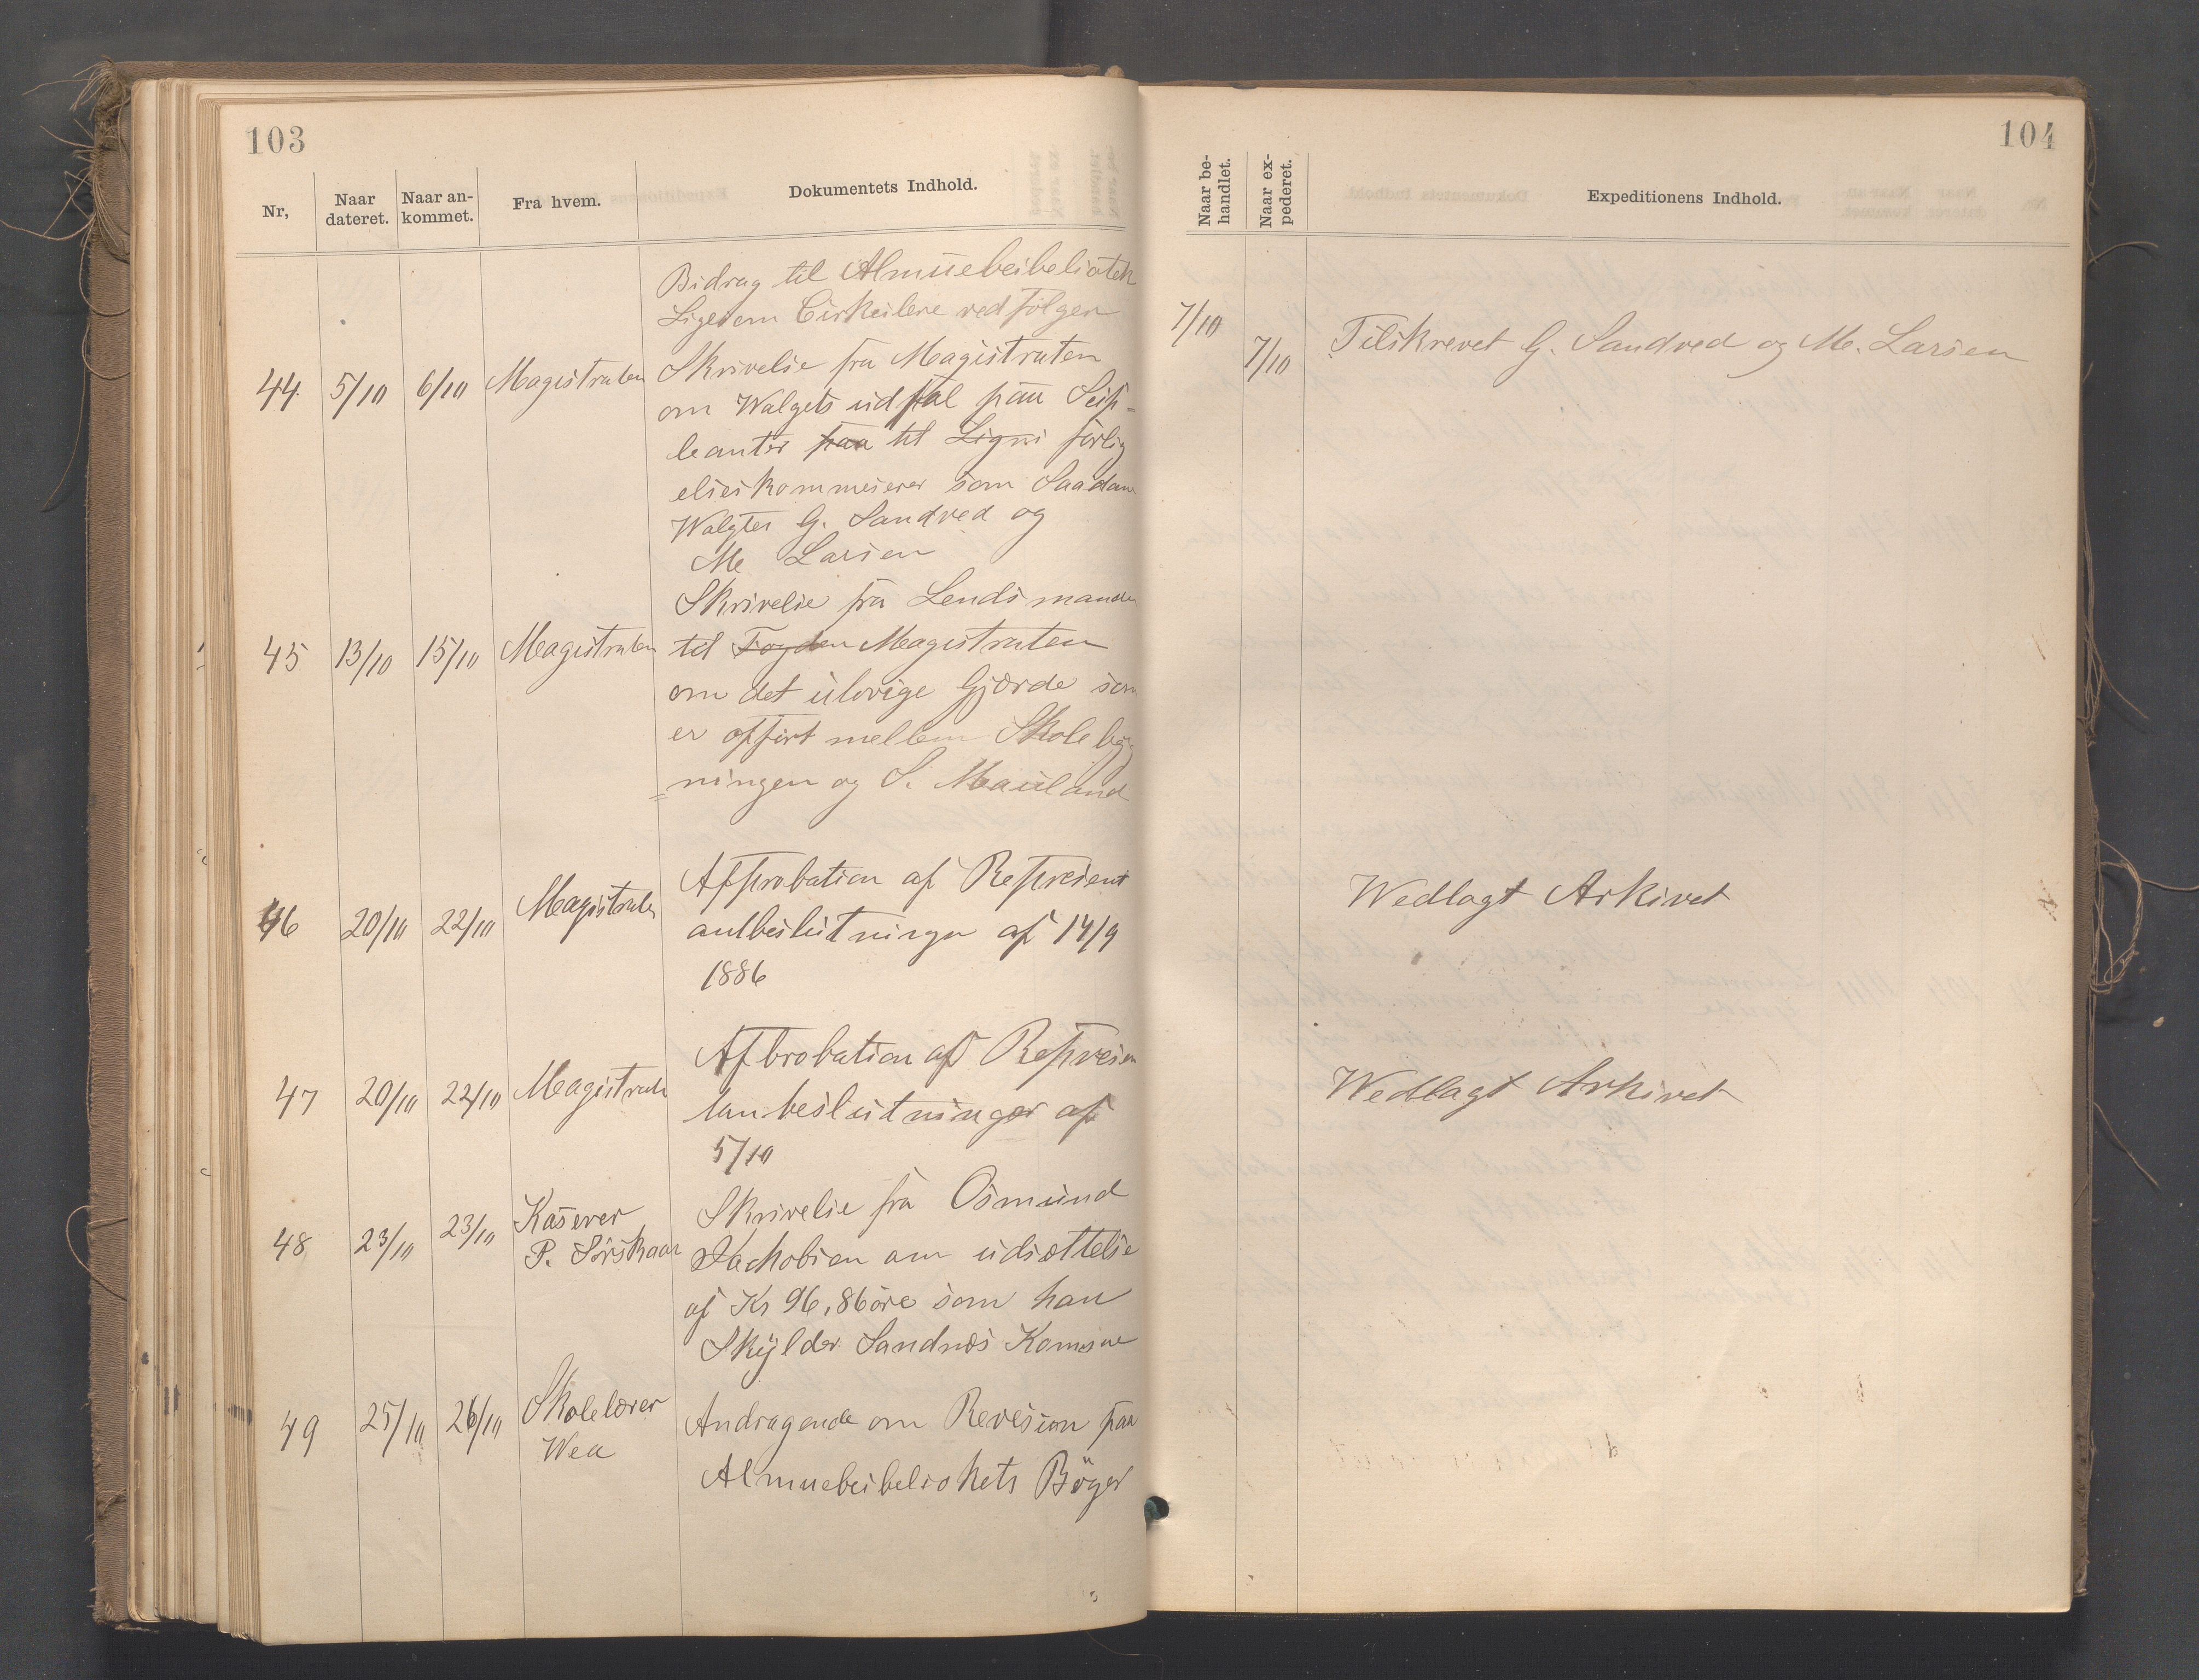 103
Nr,
Naar dateret.
Naar ankommet.
Fra hvem.
Dokumentets Indhold.
Bidrag til Almuebeibeliotek
Ligesom Cirkulere vedfölger
44. 5/10 6/10 Magistraten
Skrivelse fra Magistraten
om Walgets udfal paa Sup-
leanter paa til Ligni forlig
elseskommeserer som Saadan
Walgtes G. Sandved og
M Larsen
45 13/10 15/10 Magistraten
Skrivelse fra Lendsmanden
til Fogden Magistraten
om det ulovige Gjærde som
er opfört mellem Skoleby
=ningen og S. Mauland
46 20/10 22/10 Magistraten
Approbation af Represent
antbeslutninger af 14/9
1886
47 20/10 22/10 Magistraten
Afbrobation af Represen
tanbeslutninger af
5/10
48 23/10 23/10 Kaserer
P. Sörskaar
Skrivelse fra Osmund
Jachobsen om udsættelse
af Kr 96,86 öre som han
Skylder Sandnæs Komune
49 25/10 26/10 Skolelærer
Wea
Andragende om Revision paa
Almuebeibeliokets Böger
104
Naar behandlet.
Naar expederet.
Expeditionens Indhold.
7/10
7/10 Tilskrevet G. Sandved og M. Larsen
Wedlagt Arkivet
Wedlagt Arkivet